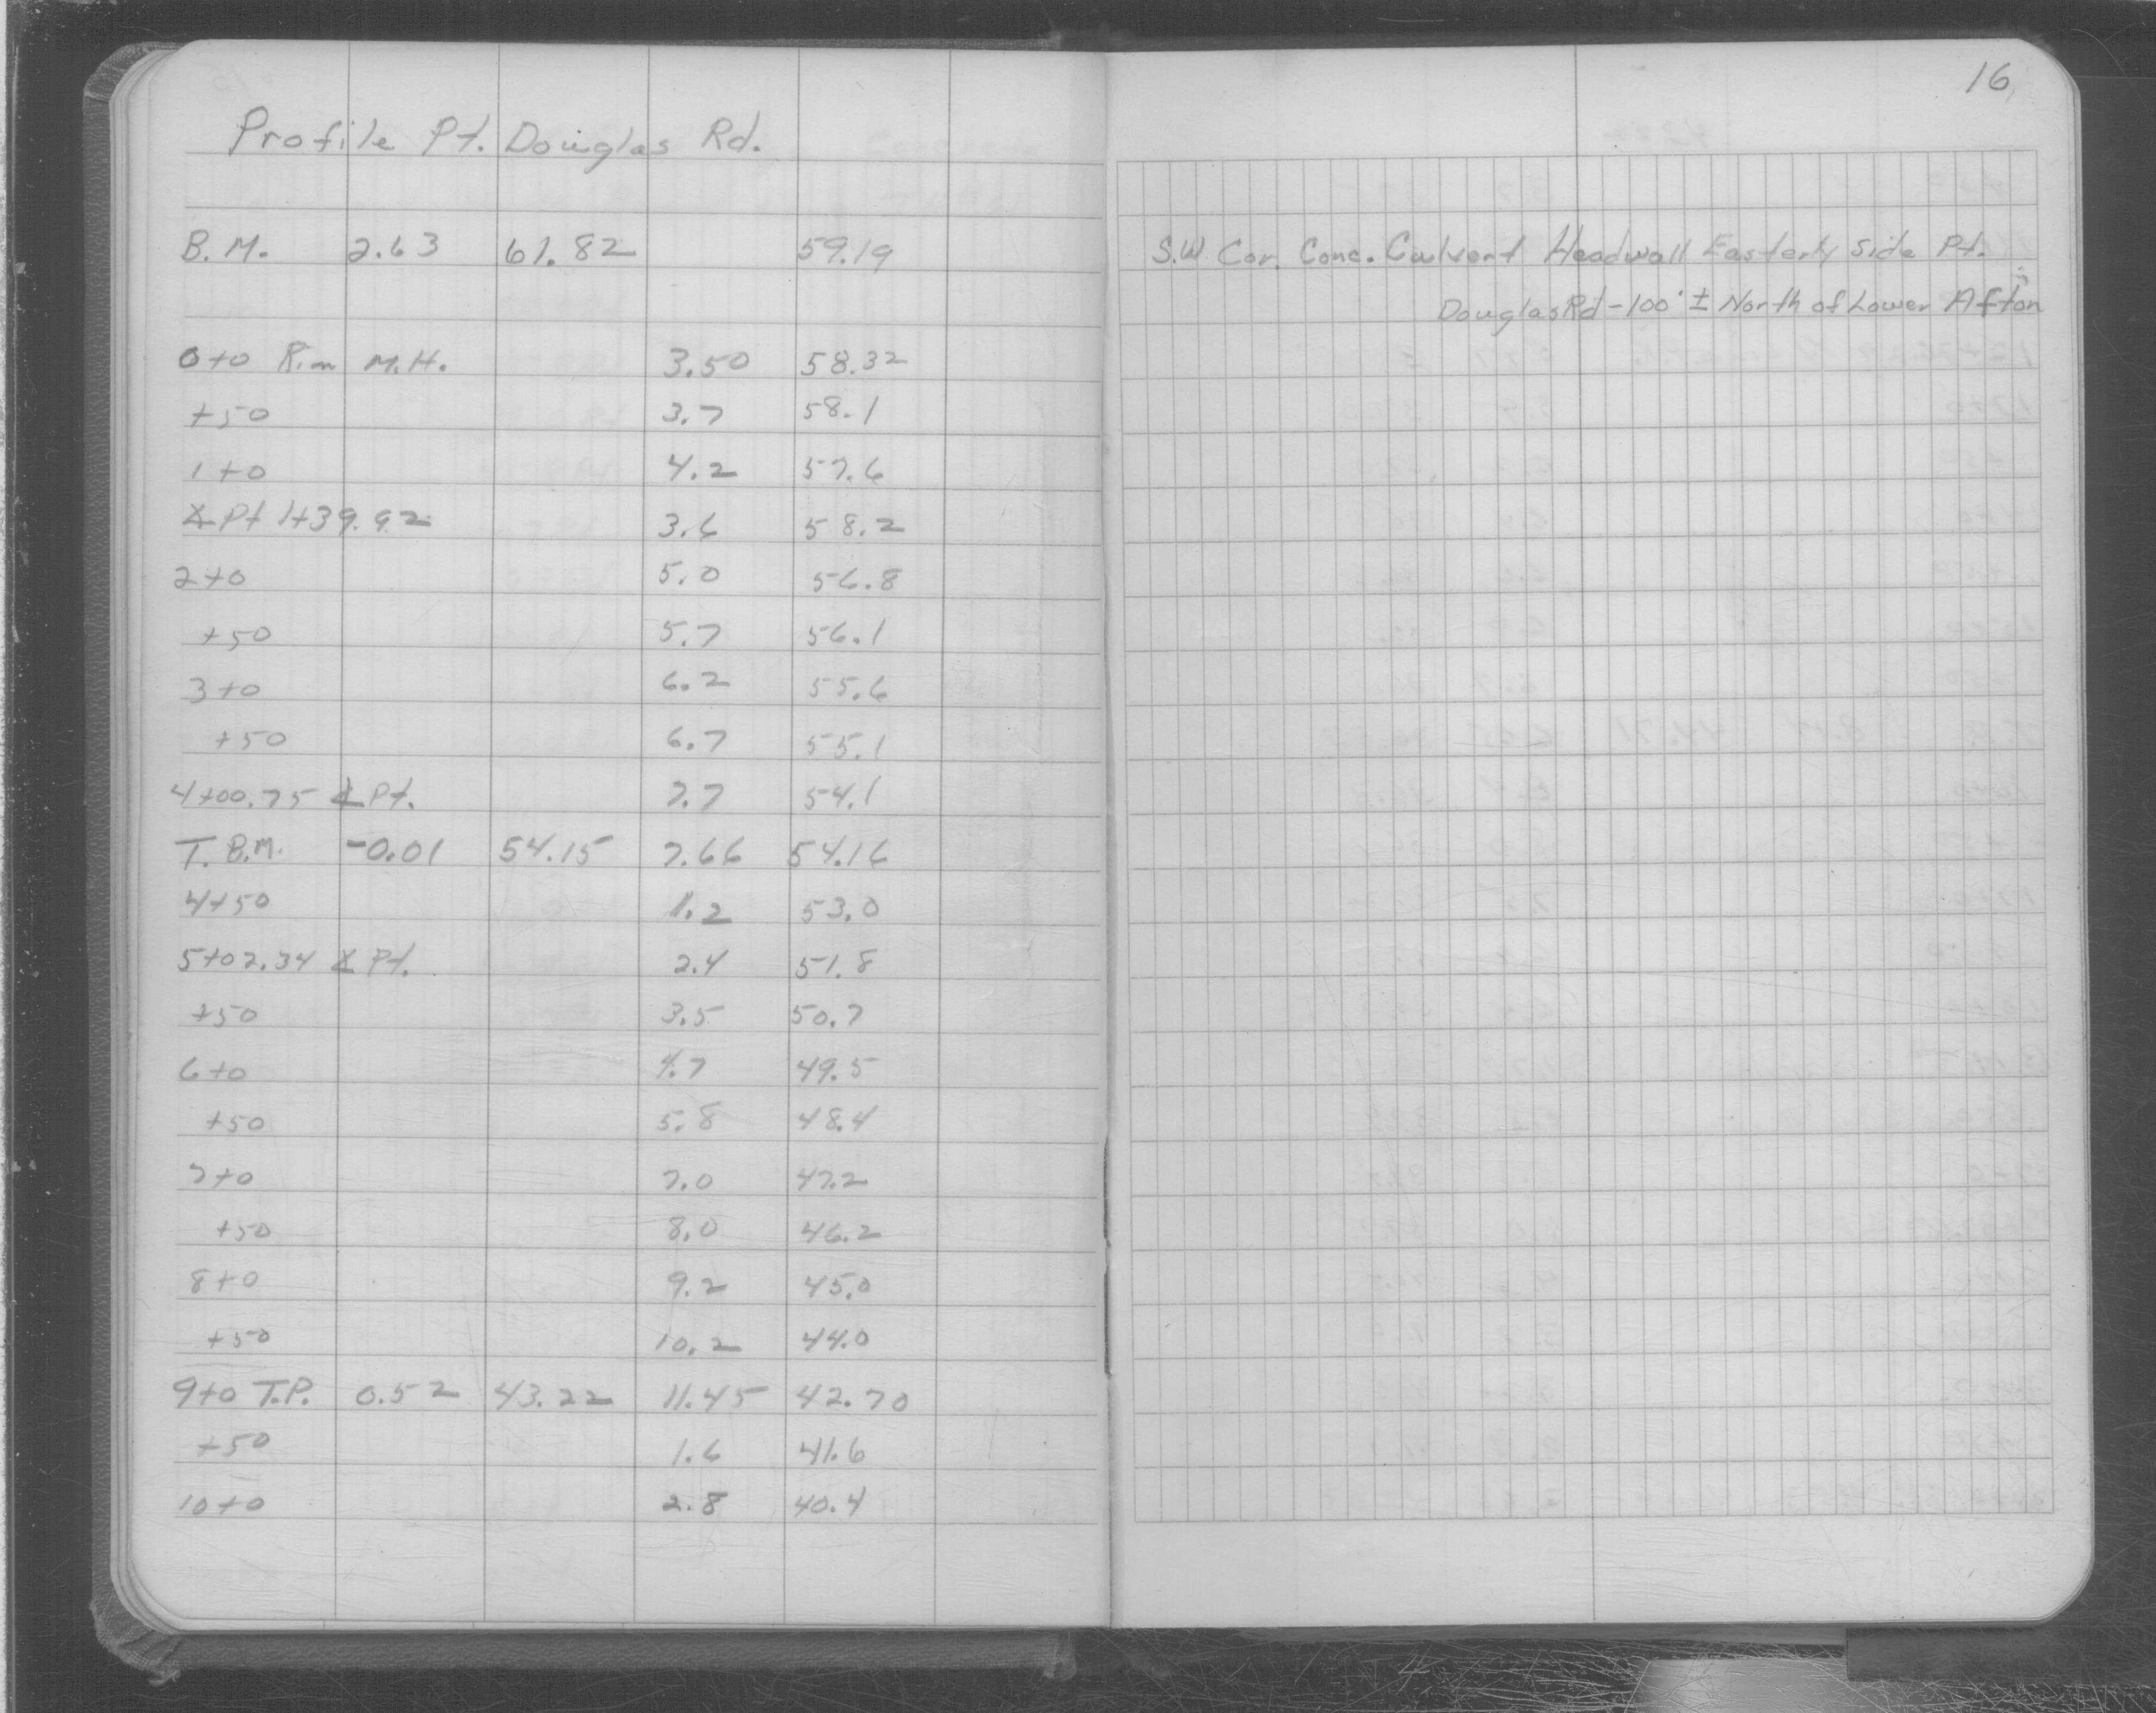 16
Profile Pt. Douglas Rd.
B.M. 2.63 61.82 59.19 S.W. Cor. Conc. Culvert Headwall Easterly Side Pt.
Douglas Rd - 100' ± North of Lower Afton
0+0 Rim M.H. 3.50 58.32
+50 3.7 58.1
1+0 4.2 57.6
∡ Pt 1+39.92 3.6 58.2
2+0 5.0 56.8
+50 5.7 56.1
3+0 6.2 55.6
+50 6.7 55.1
4+00.75 ∡ Pt. 7.7 54.1
T.B.M. -0.01 54.15 7.66 54.16
4+50 1.2 53.0
5+02.34 ∡ Pt. 2.4 51.8
+50 3.5 50.7
6+0 4.7 49.5
+50 5.8 48.4
7+0 7.0 47.2
+50 8.0 46.2
8+0 9.2 45.0
+50 10.2 44.0
9+0 T.P. 0.52 43.22 11.45 42.70
+50 1.6 41.6
10+0 2.8 40.4